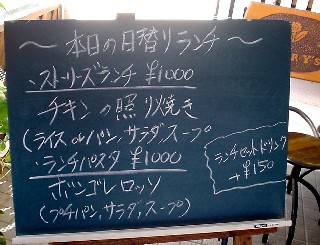 ～本日の日替りランチ～
・ストーリーズランチ ¥1000
チキンの照り焼き
(ライス or パン、サラダ、スープ)
・ランチパスタ ¥1000
ボンゴレロッソ
(プチパン、サラダ、スープ)
ランチセットドリンク
+¥150